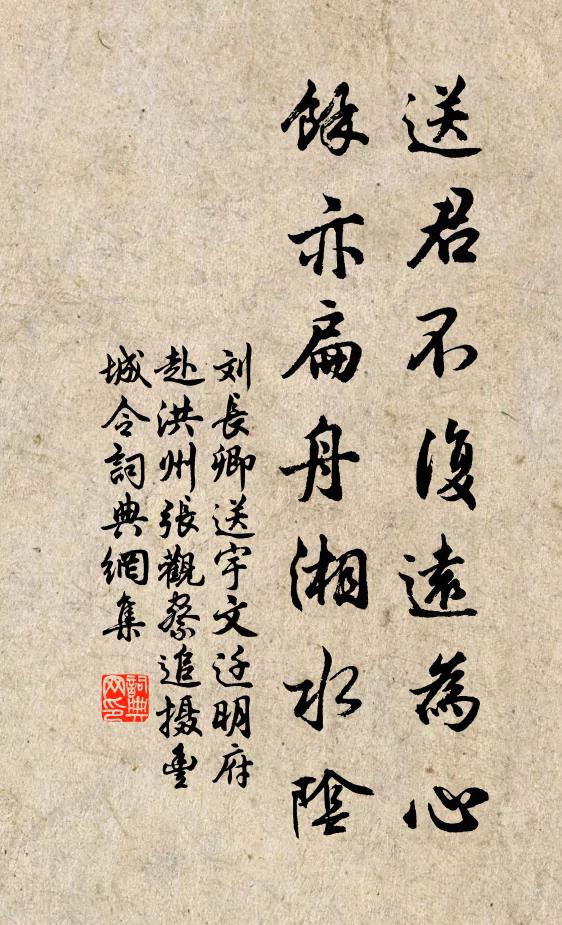 送君不復遠為心
餘亦扁舟湘水陰
刘長卿送宇文迁明府
赴洪州張觀察追摄豊
城令詞典網集
詞典
网印